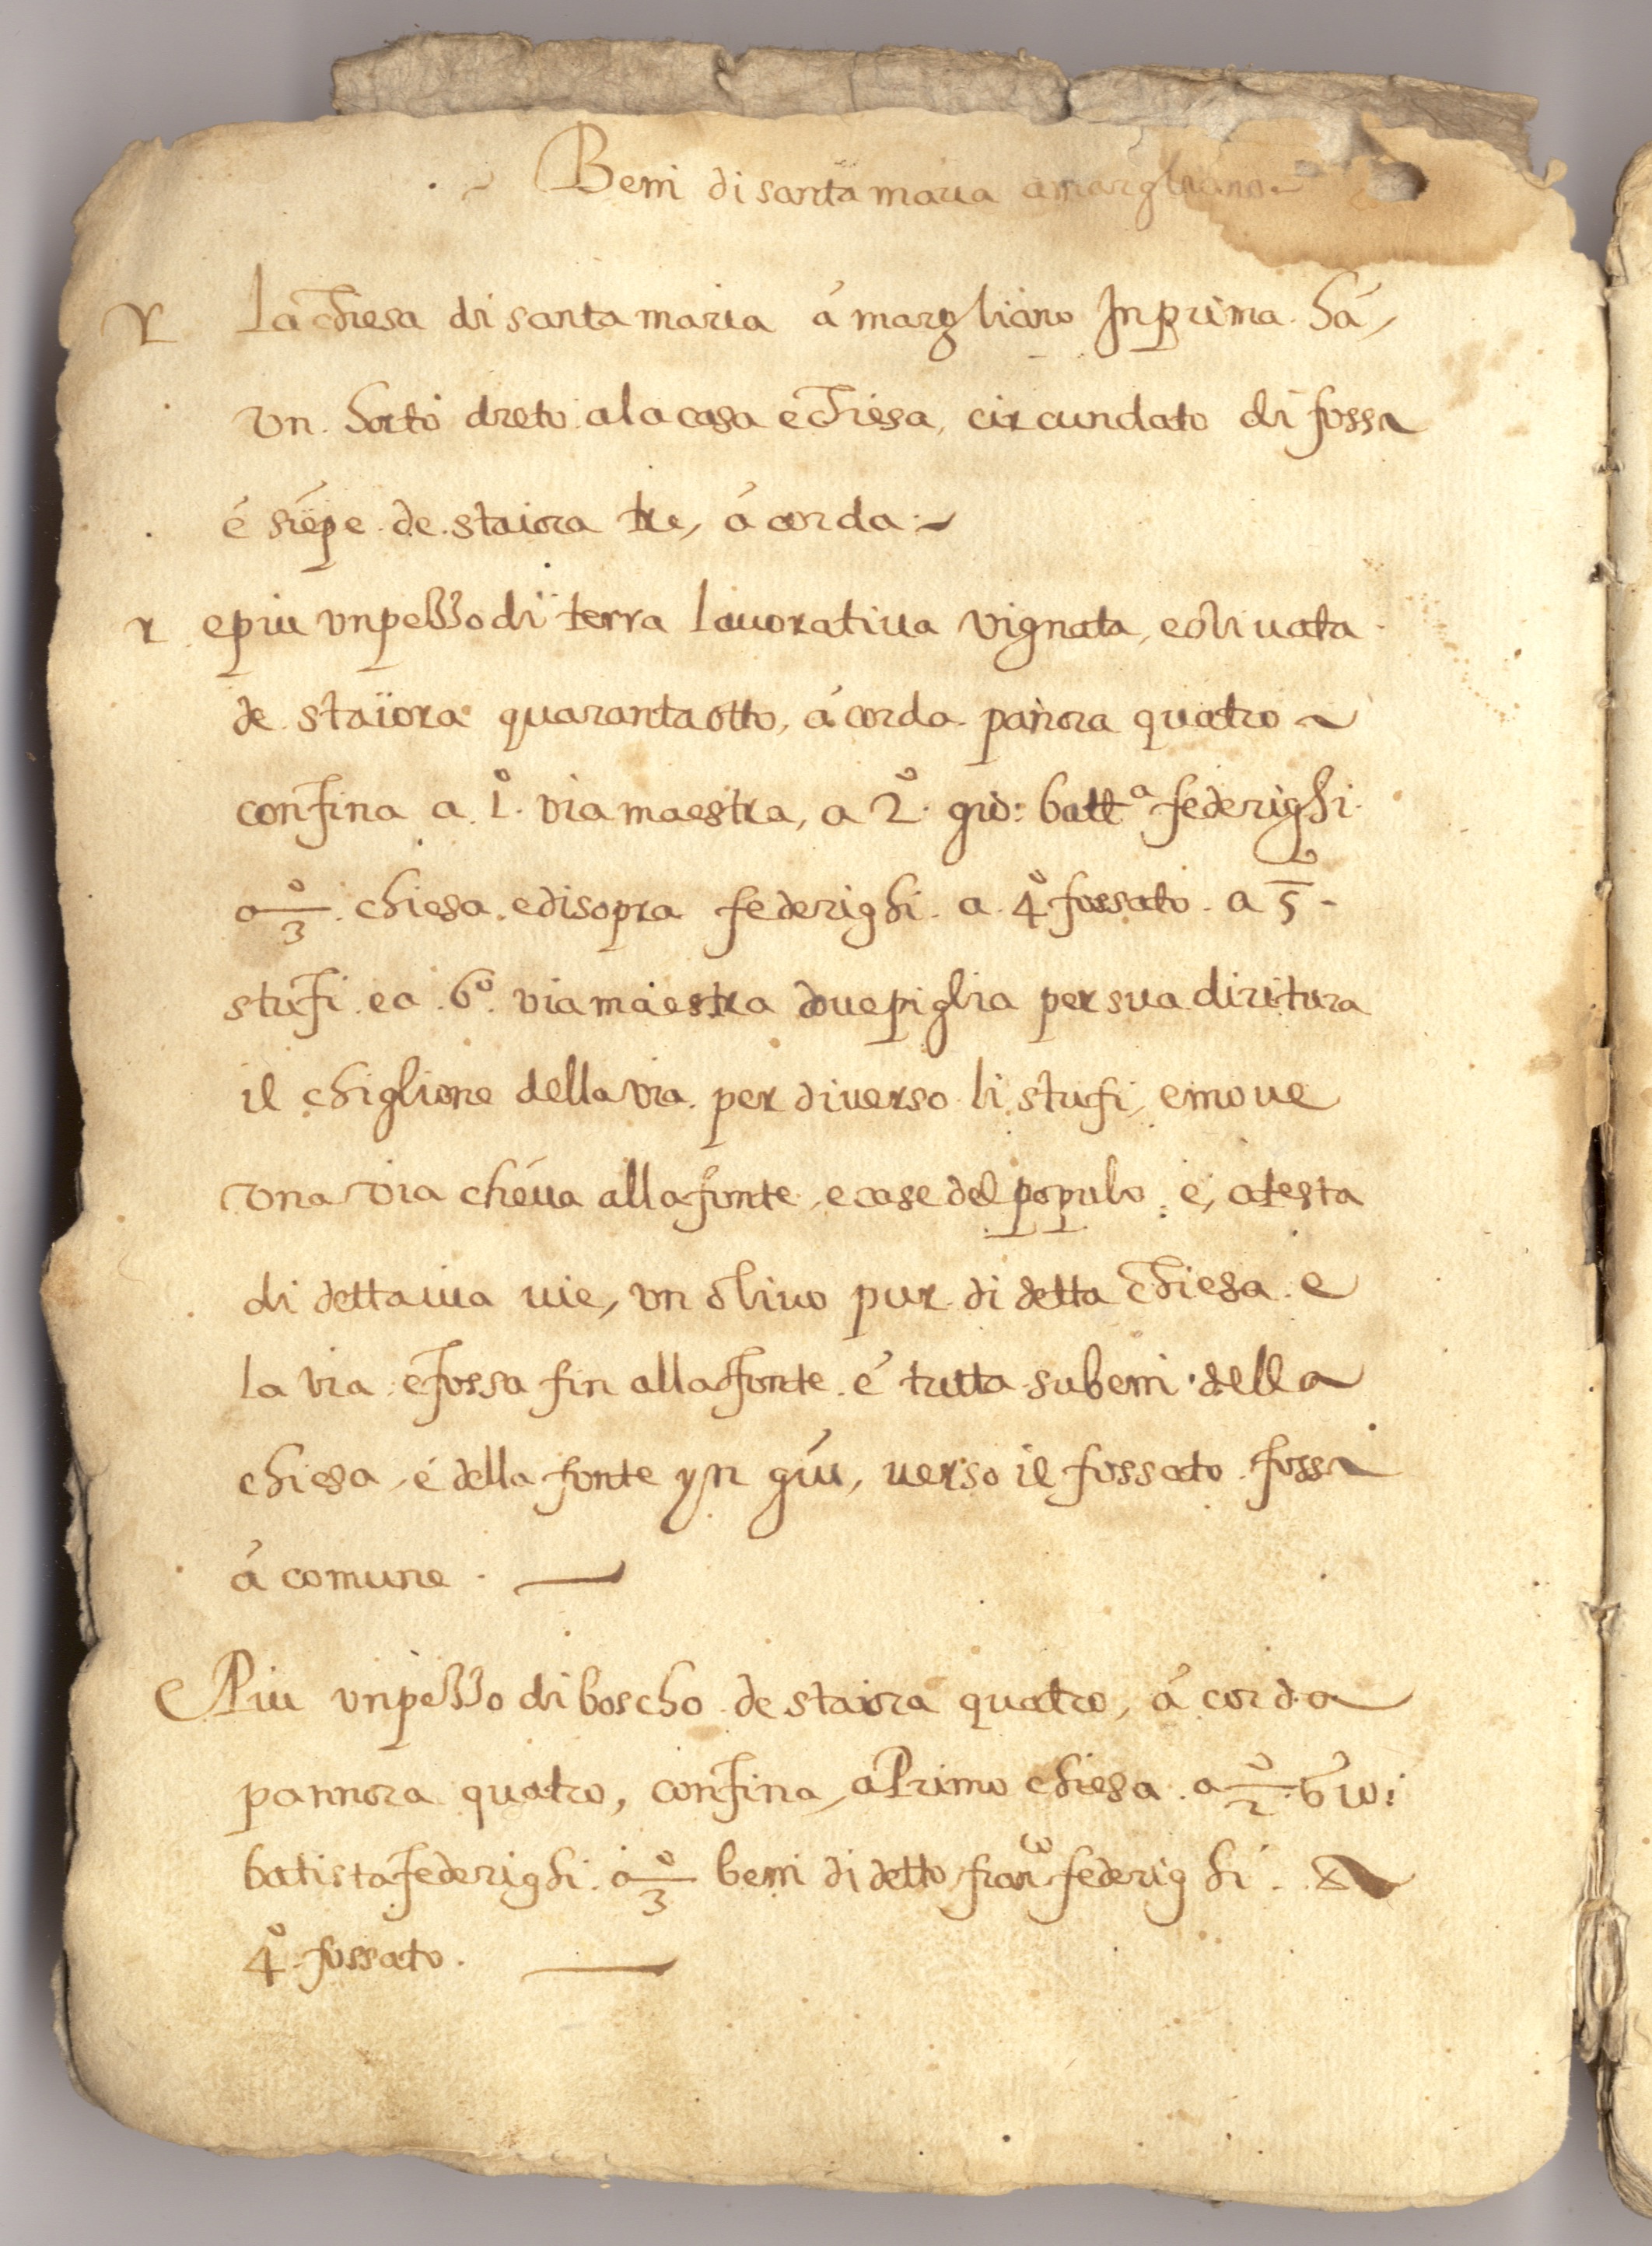 Beni di santa maria a margliano
La chiesa di santa maria á margliano Inprima há,
vn horto dreto alacasa e chiesa, circundato di fossa
é siépe de staiora tre, á corda
epiu vnpezzo di terra lauoratiua vignata, e oliuata
de staiora quarantaotto, á corda panora quatro
confina a 1º. via maestra, a 2º. gio: battᵃ federighi
a 3º. chiesa. e disopra federighi. a. 4º fossato. a 5º
stufi. e a. 6º. via maestra doue piglia per sua diritura
il chiglione della via. per diuerso li stufi, e moue
vna via ché ua alla fonte, e case del populo. e, a testa
di detta uia uie, vn oliuo pur di detta chiesa. e
la via e fossa fin alla fonte. é tutta su beni della
chiesa, é della fonte yn giú, uerso il fossato. fossa
á comune.
E Piu vnpezzo di boscho de staiora quatro, á corda
pannora quatro, confina, a Primo chiesa. a 2º. Gio:
batista federighi. a 3º beni di detto franᶜᵒ federighi. &
4º fossato.